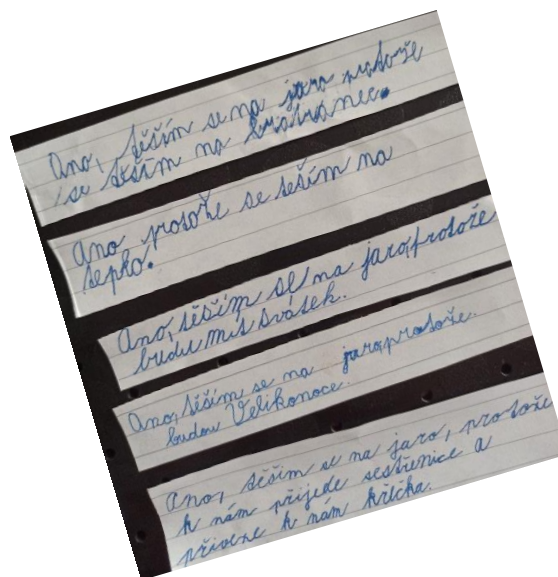 Ano, těším se na jaro protože
se těším na bratrance.
Ano protože se teším na
tepko.
Ano, těším se na jaro, protože
budu mít svátek.
Ano, těším se na jaro, protože.
budou Velikonoce.
Ano, těším se na jaro, protože
k nám přijede sestřenice a
přiveze k nám křečka.